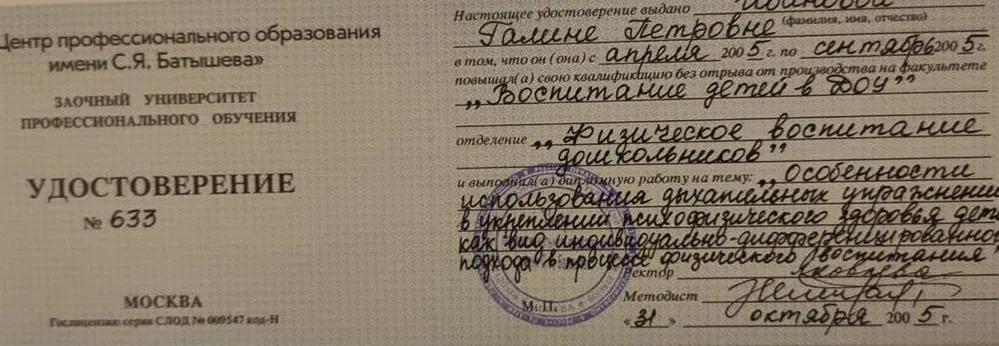 Центр профессионального образования
имени С.Я. Батышева»
ЗАОЧНЫЙ УНИВЕРСИТЕТ
ПРОФЕССИОНАЛЬНОГО ОБУЧЕНИЯ
УДОСТОВЕРЕНИЕ
№ 633
МОСКВА
Гослицензия: серия СЛОД № 009547 код-Н
Настоящее удостоверение выдано Ивановой
Галине Петровне (фамилия, имя, отчество)
в том, что он (она) с апреля 2005 г. по сентябрь 2005 г.
повышал(а) свою квалификацию без отрыва от производства на факультете
„Воспитание детей в ДОУ”
отделение „Физическое воспитание
дошкольников”
и выполнил(а) дипломную работу на тему: „Особенности
использования дыхательных упражнений
в укреплении психофизического здоровья дет
как вид индивидуально-дифференцированного
подхода в процессе физического воспитания”
Ректор
Методист
М.П.
«31» октября 2005 г.